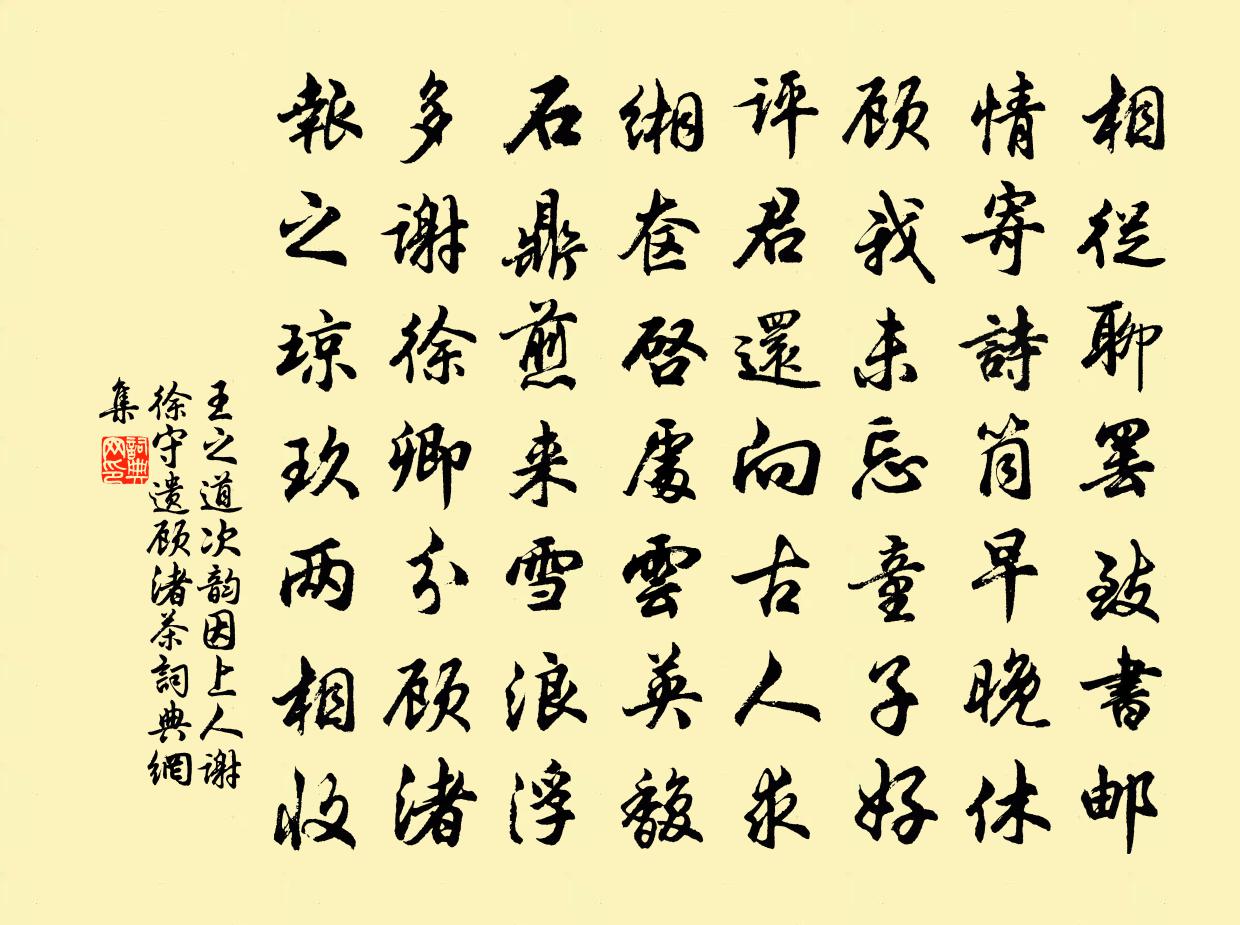 相從聊罢致書邮
情寄詩筒早晚休
顾我未忘童子好
評君還向古人求
缃奁启處雲英馥
石鼎煎来雪浪浮
多謝徐卿分顾渚
報之琼玖两相收
王之道次韵因上人謝
徐守遗顾渚茶詞典網
集
詞典網印